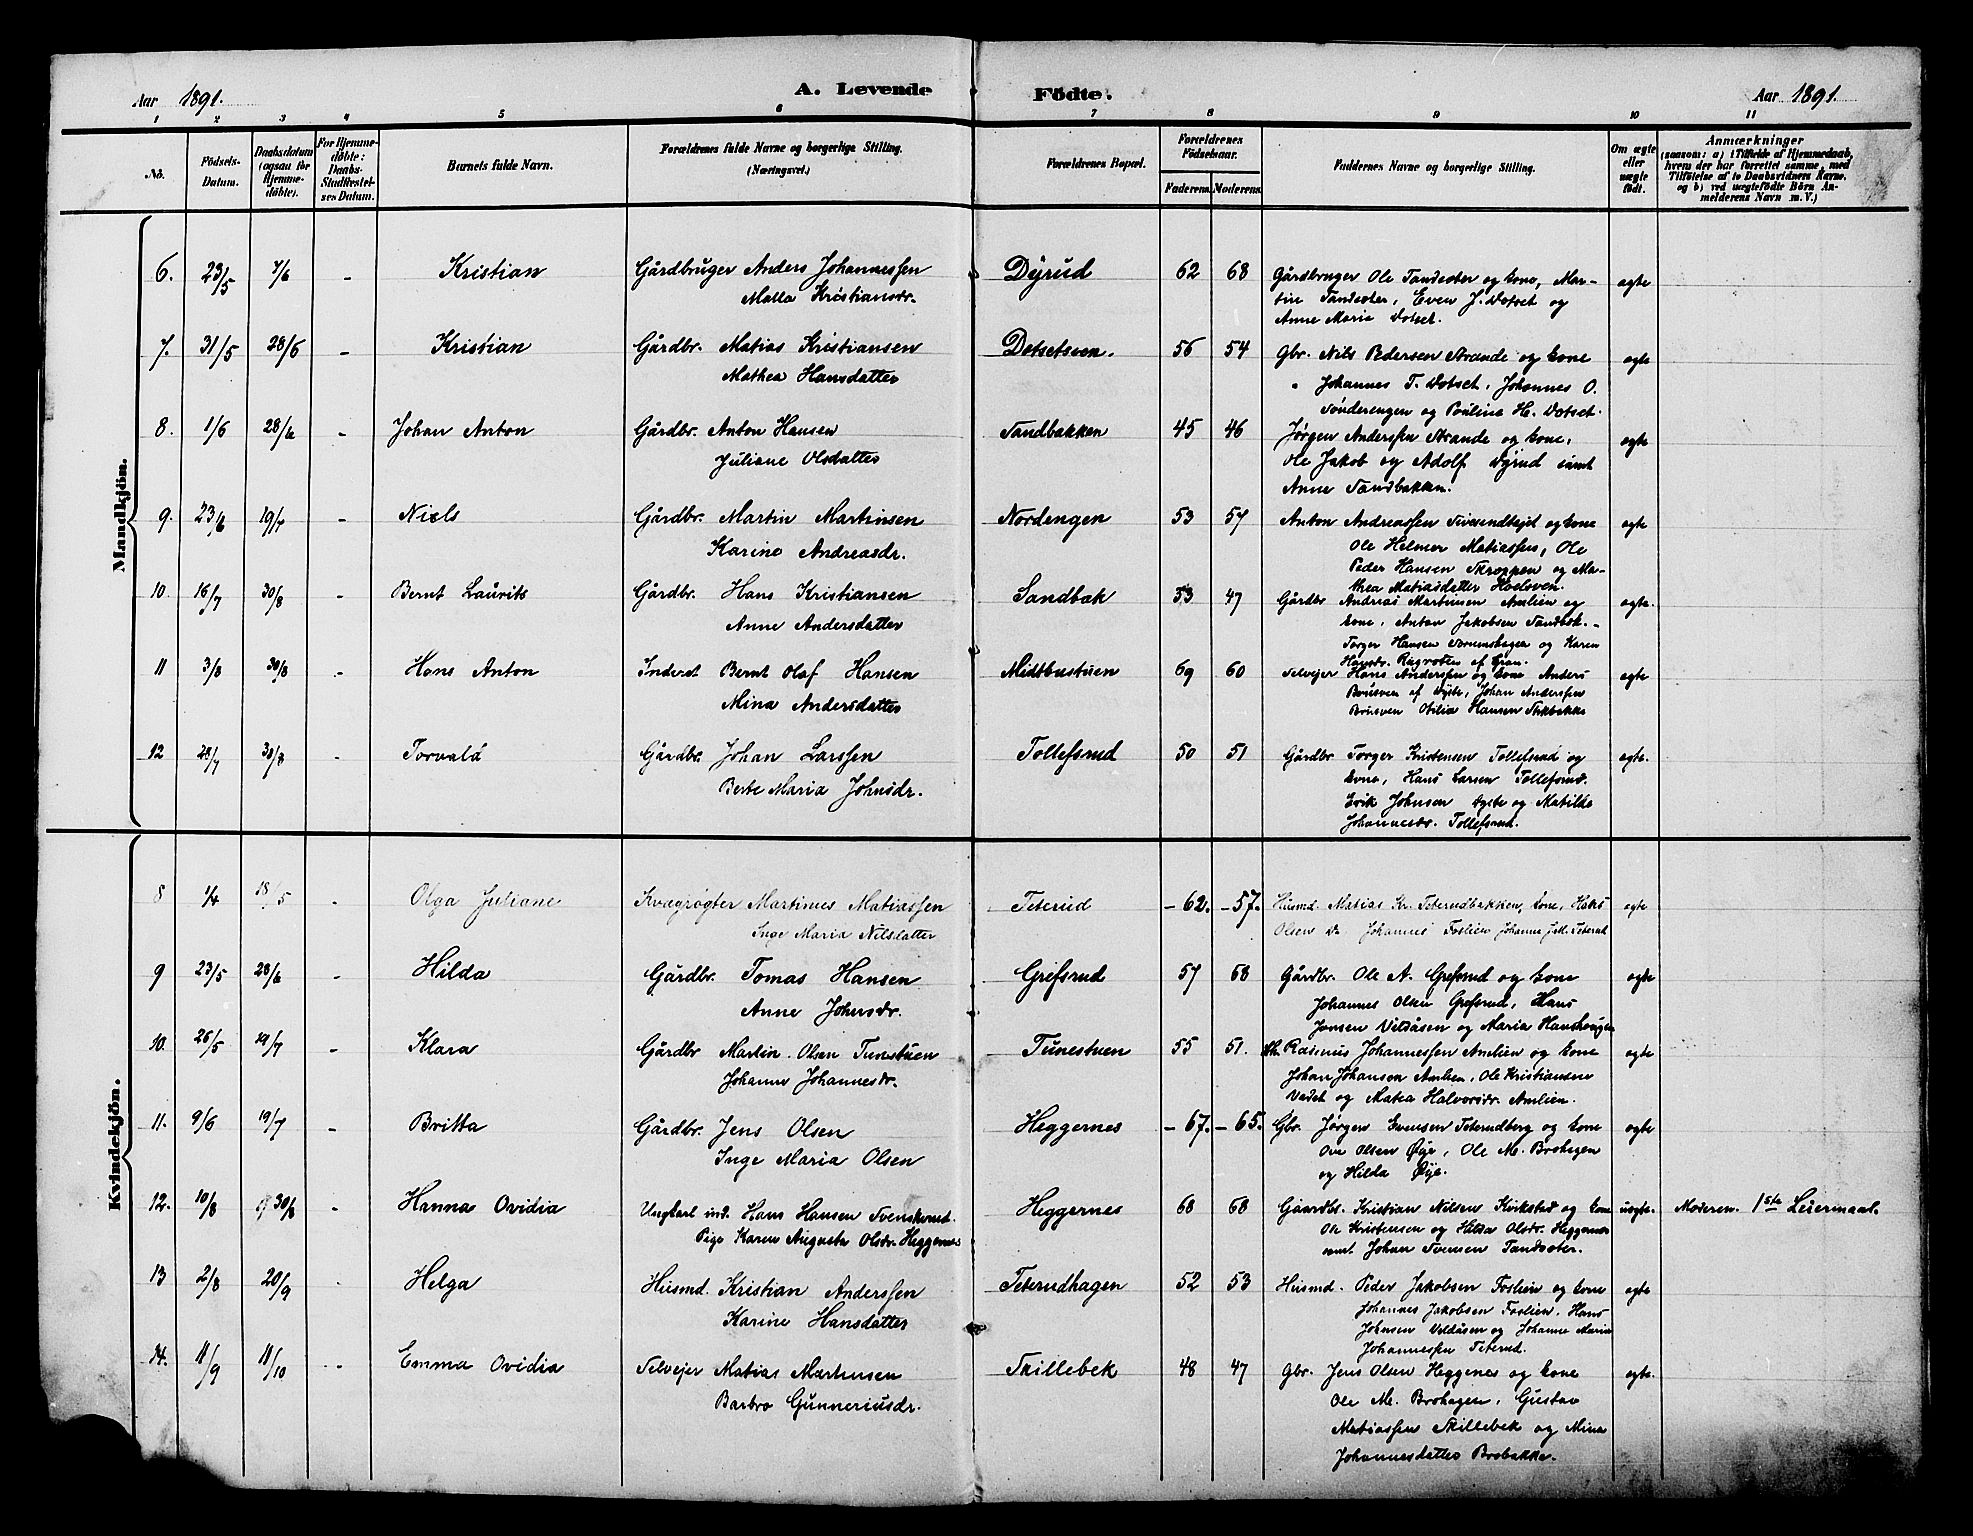 Aar 1891. A. Levende Fødte. Aar 1891.
1 2 3 4 5 6 7 8 9 10 11
No.
Födsels-Datum.
Daabsdatum (ogsaa for Hjemme-döbte).
For Hjemme-döbte: Daabs-Stadfæstel-ses Datum.
Barnets fulde Navn.
Forældrenes fulde Navne og borgerlige Stilling. (Næringsvei.)
Forældrenes Bopæl.
Forældrenes Födselsaar.
Faderens. Moderens.
Faddernes Navne og borgerlige Stilling.
Om ægte eller uægte födt.
Anmærkninger
(saasom: a) i Tilfælde af Hjemmedaab,
hvem der har forrettet samme, med
Tilföielse af to Daabsvidners Navne,
og b) ved uægtefödte Börn An-
melderens Navn m. V.)
Mandkjön.
6. 23/5 7/6 - Kristian Gårdbruger Anders Johannessen Dyrud 62 68 Gårdbruger Ole Sandsoter og kone, Mar- ægte
Malla Kristiansdr. tin Sandsoter, Even J. Dotset og
Anne Maria Dotset.
7. 31/5 28/6 - Kristian Gårdbr. Matias Kristiansen Dotsetsven. 56 54 Gbr. Nils Pedersen Strande og kone ægte
Mathea Hansdatter " Johannes T. Dotset, Johannes O.
Sønderengen og Paulina H. Dotset.
8. 1/6 28/6 - Johan Anton Gårdbr. Anton Hansen Sandbakken 45 46 Jørgen Anderssen Strande og kone, ægte
Juliane Olsdatter Ole Jakob og Adolf Dyrud samt
Anne Sandbakken.
9. 23/6 19/7 - Niels Gårdbr. Martin Martinsen Nordengen 53 57 Anton Andreassen og kone ægte
Karine Andreasdr. Ole Helmer Matiassen, Ole
Peder Hansen Skroppen og Ma-
thea Matiasdatter Hoelsven.
10. 16/7 30/8 - Bernt Laurits Gårdbr. Hans Kristiansen Sandbæk 53 47 Gårdbr Andreas Martinsen Amlien og ægte.
Anne Andersdatter kone, Anton Jakobsen Sandbæk.
Torger Hansen og Karen
Hansdr. Røgroten af Gran.
11 3/8 30/8 - Hans Anton Inderst Bernt Olaf Hansen Midtbustuen 69 60 Selvejer Hans Anderssen og kone Anders ægte
Mina Andersdatter Brusven af Dyste, Johan Anderssen
Brusven Otilia Hansen
12 28/7 30/8 - Torvald Gårdbr. Johan Larssen Tollefsrud 50 51 Gårdbr Torger Kristensen Tollefsrud og ægte.
Berte Maria Johnsdr. kone, Hans Larsen Tollefsrud.
Erik Johnsen Dyste og Matilde
Johannesdr. Tollefsrud.
Kvindekjön.
8 1/4 18/5 - Olga Juliane Kvægrøgter Martinus Matiassen Teterud -62. -57. Husmd Matias Kr. Teterudbakken, kone, Hans ægte
Inge Maria Nilsdatter Olsen Do Johannes Foslien Johanne Teterud
9 23/5 28/6 - Hilda Gårdbr. Tomas Hansen Grefsrud 57 68 Gårdbr. Ole A. Grefsrud og kone ægte
Anne Johnsdr. Johannes Olsen Grefsrud, Hans
Jonsen Veldåsen og Maria Hanshaugen
10. 26/5 19/7 - Klara Gårdbr Martin Olsen Tunestuen Tunestuen 55 51. Rasmus Johannessen Amlien og kone ægte
Johanne Johannesdr. Johan Johansen Amlien, Ole Kristiansen
Vedet og Matea Halvorsdr. Amlien.
11. 9/6 19/7 - Britta Gårdbr. Jens Olsen Heggernes -67. -65. Gbr. Jørgen Evensen Teterudberg og kone ægte
Inge Maria Olsen Ove Olsen Øye, Ole M. Brohagen
og Hilda Øye.
12. 10/8 30/8 - Hanna Ovidia Ungkarl ind. Hans Hansen Svenskerud. Heggernes 68 68 Gaardbr. Kristian Nilsen Kirkstad og kone uægte Moderen. 1ste Leiermaal.
Pige Karen Augusta Olsdr. Heggernes Ole Kristensen og Hilda Olsdr. Heggernes
samt Johan Svensen Sandsoter.
13 2/8 20/9 - Helga Husmd. Kristian Anderssen Teterudhagen 52 53 Husmd. Peder Jakobsen Foslien og kone ægte
Karine Hansdatter Johannes Jakobsen Foslien, Hans
Johnsen Veldåsen og Johanne Maria
Johannessen Teterud.
14. 11/9 11/10 - Emma Ovidia Selvejer Matias Martinsen Skillebek 48 47 Gbr. Jens Olsen Heggenes og kone ægte.
Barbro Gunneriusdr. Ole M. Brohagen, Gustav
Matiassen Skillebek og Mina
Johannesdatter Brobakke.